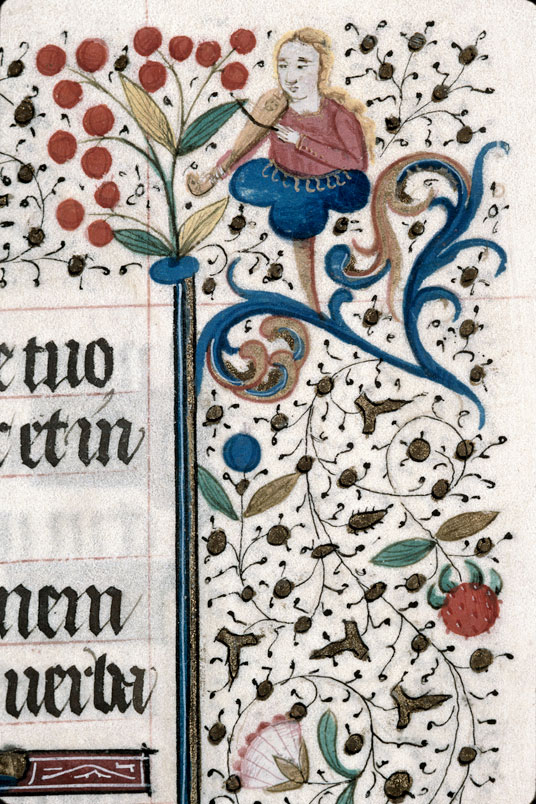 e tuo
et in
nem
uerba